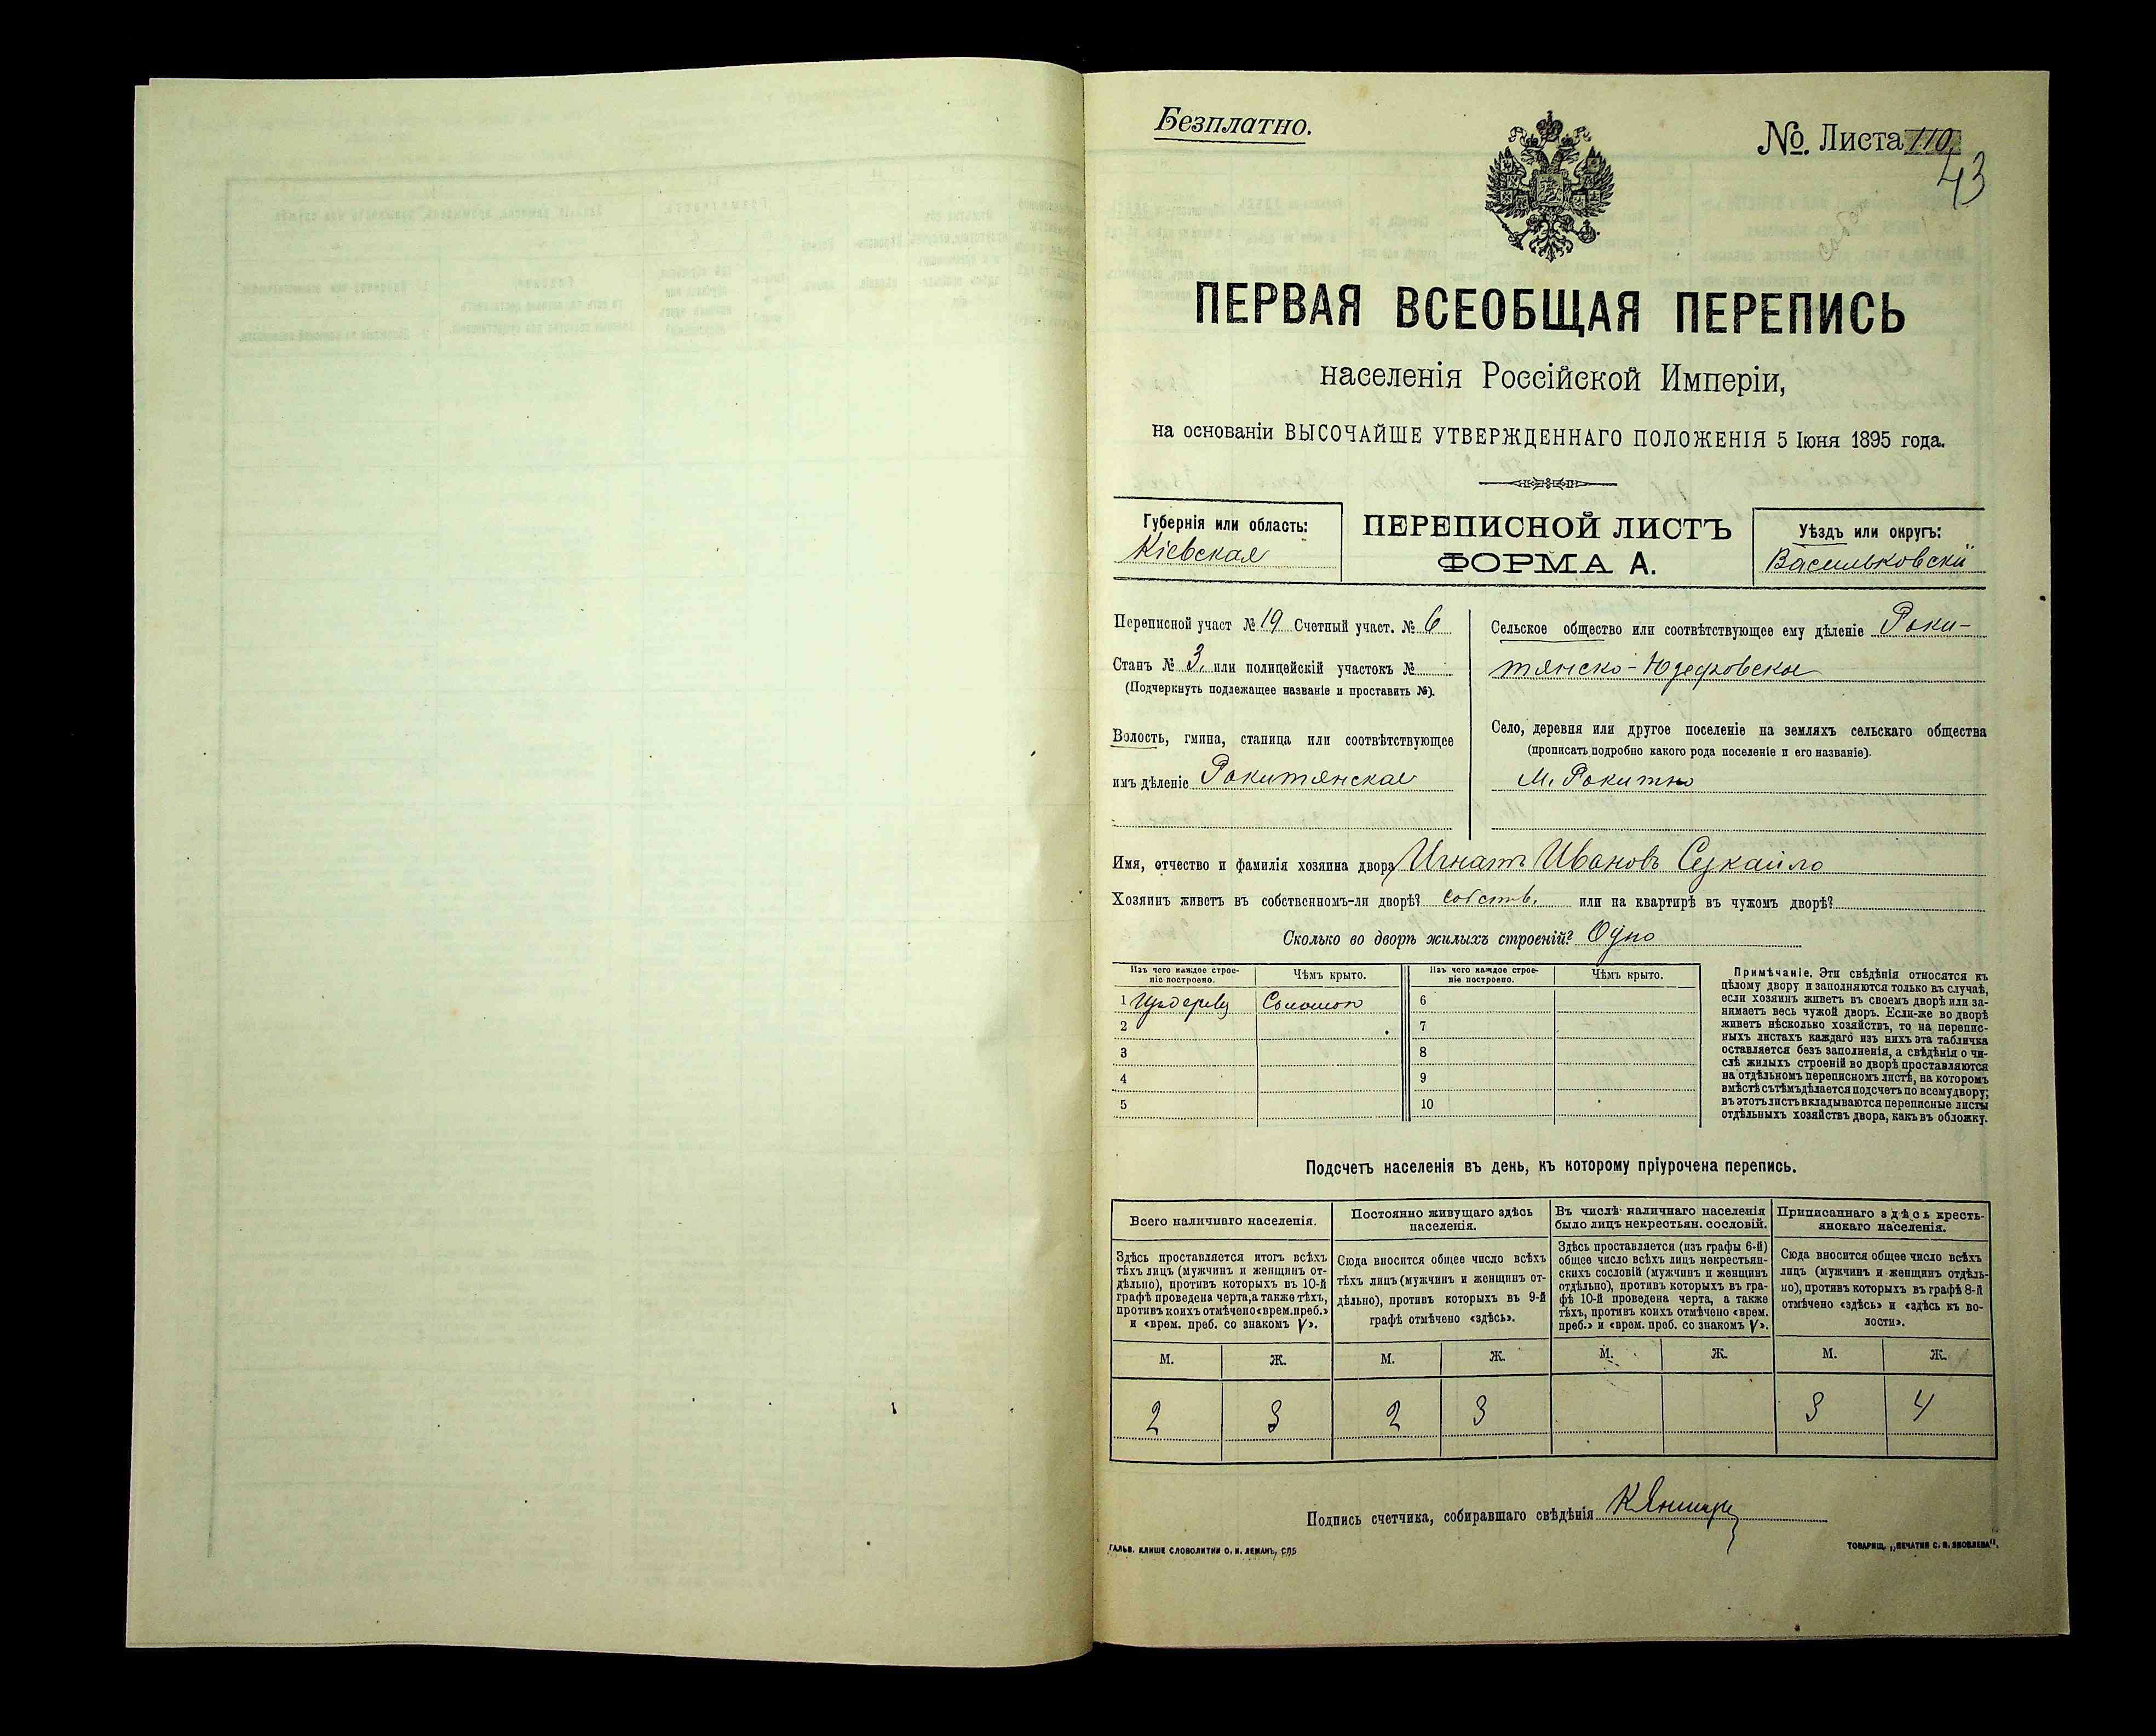 Безплатно.
№. Листа 110
43
ПЕРВАЯ ВСЕОБЩАЯ ПЕРЕПИСЬ
населенія Россійской Имперіи,
на основаніи ВЫСОЧАЙШЕ УТВЕРЖДЕННАГО ПОЛОЖЕНІЯ 5 Іюня 1895 года.
Губернія или область:
Кіевская
ПЕРЕПИСНОЙ ЛИСТЪ
ФОРМА А.
Уѣздъ или округъ:
Васильковскій
Переписной участ № 19 Счетный участ. № 6
Станъ № 3. или полицейскій участокъ №
(Подчеркнуть подлежащее названіе и проставить №).
Волость, гмина, станица или соотвѣтствующее
имъ дѣленіе Рокитянская
Сельское общество или соотвѣтствующее ему дѣленіе Роки-
тянско-
Село, деревня или другое поселеніе на земляхъ сельскаго общества
(прописать подробно какого рода поселеніе и его названіе).
М. Рокитно
Имя, отчество и фамилія хозяина двора Игнатъ Ивановъ
Хозяинъ живетъ въ собственномъ-ли дворѣ? собств. или на квартирѣ въ чужомъ дворѣ?
Сколько во дворѣ жилыхъ строеній? Одно
Изъ чего каждое строе-
ніе построено.
Чѣмъ крыто.
Изъ чего каждое строе-
ніе построено.
Чѣмъ крыто.
1 Соломой 6
2 7
3 8
4 9
5 10
Примѣчаніе. Эти свѣдѣнія относятся къ
цѣлому двору и заполняются только въ случаѣ,
если хозяинъ живетъ въ своемъ дворѣ или за-
нимаетъ весь чужой дворъ. Если-же во дворѣ
живетъ нѣсколько хозяйствъ, то на перепис-
ныхъ листахъ каждаго изъ нихъ эта табличка
оставляется безъ заполненія, а свѣдѣнія о чи-
слѣ жилыхъ строеній во дворѣ проставляются
на отдѣльномъ переписномъ листѣ, на которомъ
вмѣстѣ съ тѣмъ дѣлается подсчетъ по всему двору;
въ этотъ листъ вкладываются переписные листы
отдѣльныхъ хозяйствъ двора, какъ въ обложку.
Подсчетъ населенія въ день, къ которому пріурочена перепись.
Всего наличнаго населенія.
Здѣсь проставляется итогъ всѣхъ
тѣхъ лицъ (мужчинъ и женщинъ от-
дѣльно), противъ которыхъ въ 10-й
графѣ проведена черта, а также тѣхъ,
противъ коихъ отмѣчено «врем. преб.»
и «врем. преб. со знакомъ V».
Постоянно живущаго здѣсь
населенія.
Сюда вносится общее число всѣхъ
тѣхъ лицъ (мужчинъ и женщинъ от-
дѣльно), противъ которыхъ въ 9-й
графѣ отмѣчено «здѣсь».
Въ числѣ наличнаго населенія
было лицъ некрестьян. сословій.
Здѣсь проставляется (изъ графы 6-й)
общее число всѣхъ лицъ некрестьян-
скихъ сословій (мужчинъ и женщинъ
отдѣльно), противъ которыхъ въ гра-
фѣ 10-й проведена черта, а также
тѣхъ, противъ коихъ отмѣчено «врем.
преб.» и «врем. преб. со знакомъ V».
Приписаннаго здѣсь кресть-
янскаго населенія.
Сюда вносится общее число всѣхъ
лицъ (мужчинъ и женщинъ отдѣль-
но), противъ которыхъ въ графѣ 8-й
отмѣчено «здѣсь» и «здѣсь къ во-
лости».
М. Ж. М. Ж. М. Ж. М. Ж.
2 3 2 3 3 4
Подпись счетчика, собиравшаго свѣдѣнія
ГАЛЬВ. КЛИШЕ СЛОВОЛИТНИ О. И. ЛЕМАНЪ, СПБ
ТОВАРИЩ. „ПЕЧАТНЯ С. П. ЯКОВЛЕВА".